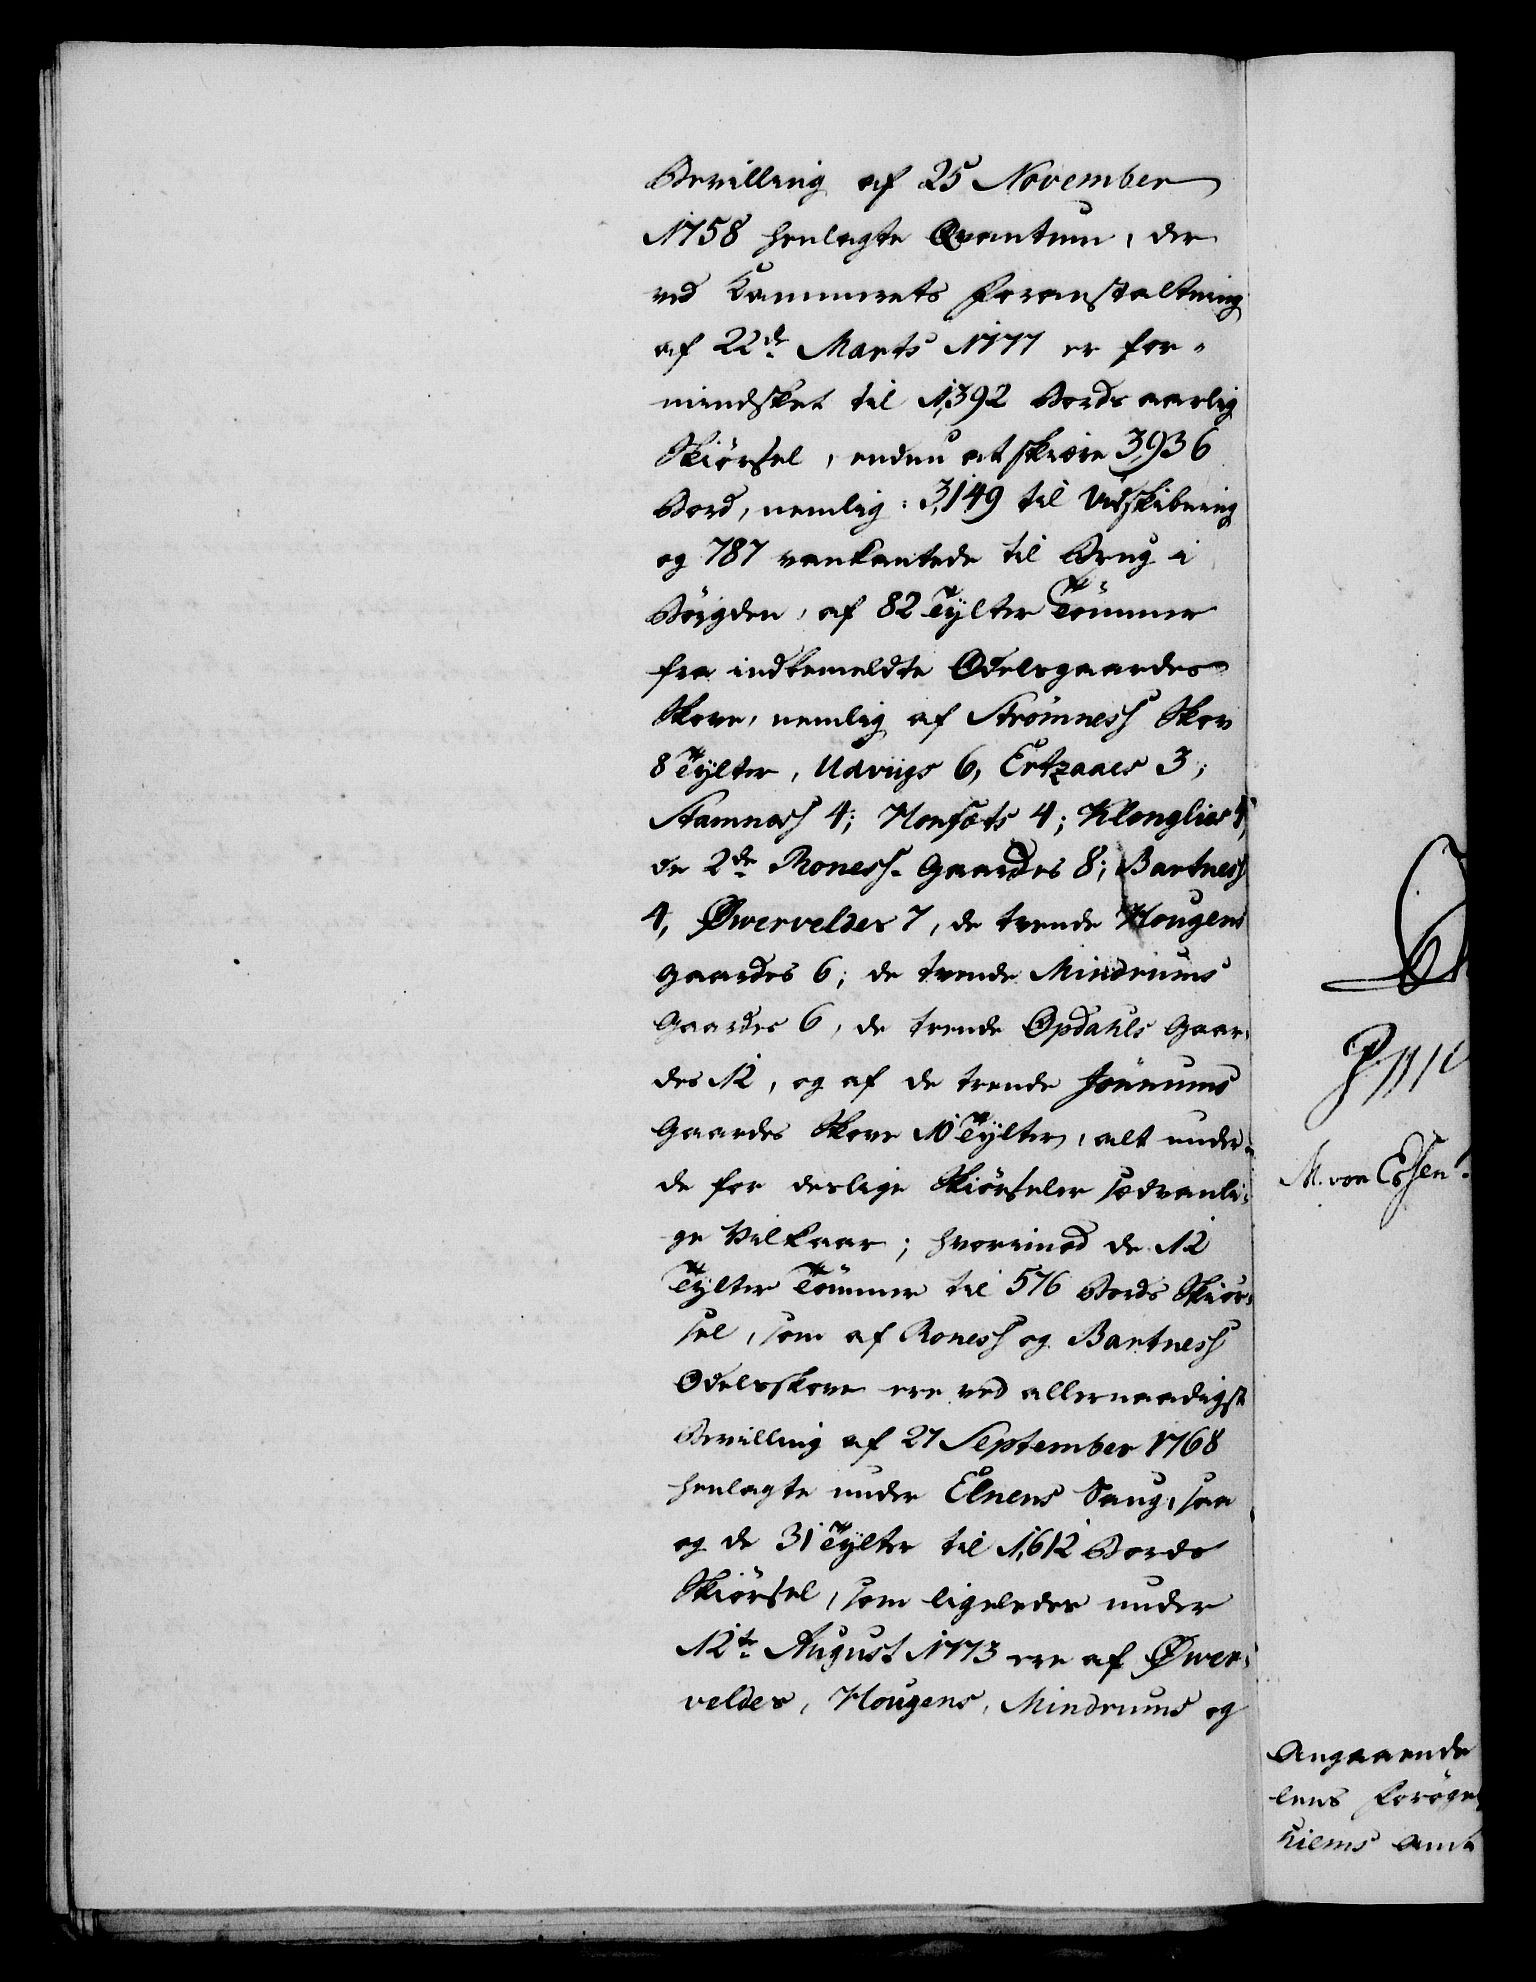 Bevilling af 25 November
1758 henlagte Qvantum, der
ved Kammerets Foranstaltning
af 22de Marts 1777 er for-
mindsket til 1,392 Bords aarlig
Skiörsel, endnu at skiære 3,936
Bord, nemlig: 3,149 til Udskibning
og 787 vankantede til Brug i
Böigden, af 82 Tylter Tömmer
fra indbemeldte Odelsgaardes
Skove, nemlig af Strömness Skov
8 Tylter, Udvigs 6, Ertzaaes 3;
Stamness 4; Honsets 4; Klonglies 4,
de 2de Roness Gaardes 8; Bartness
4, Øverveldes 7, de trende Hougens
Gaardes 6; de trende Mindrums
Gaardes 6, de trende Opdahls Gaar-
des 12, og af de trende Jörrums
Gaardes Skove 10 Tylter, alt under
de for deslige Skiörseler sædvanli-
ge Vilkaar; hvorimod de 12
Tylter Tömmer til 576 Bords Skiör-
sel, som af Roness og Bartness
Odelsskove ere ved allernaadigst
Bevilling af 27 September 1768
henlagte under Elnens Saug, saa
og de 31 Tylter til 1,612 Bords
Skiörsel, som ligeledes under
12te August 1773 ere af Øver-
veldes, Hougens, Mindrums og
M. von Essen.
Angaaende
lens Forøge
hiems Amt